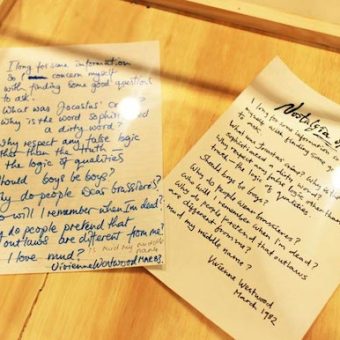 I long for some information
So I concern myself
with finding some good questions
to ask.
What was Jocastas' crime?
Why is the word sophisticated
a dirty word?
Why respect any false logic
than the truth —
the logic of qualities
Should boys be boys?
Why do people wear brassieres?
will I remember when I'm dead?
do people pretend that
outlaws are different from me?
I love mud?
is mud my middle name
Vivienne Westwood MAR 83.
Nostalgia of
I long for some information
finding some
to ask.
What was Jocastas crime? Why is
sophisticated
respect any false logic
true — the logic of qualities.
Should boys be boys?
Why do people wear brassieres?
Who will I remember when I'm dead?
Why do people pretend that outlaws
are different from me?
mud my middle name?
Vivienne Westwood
March 1982